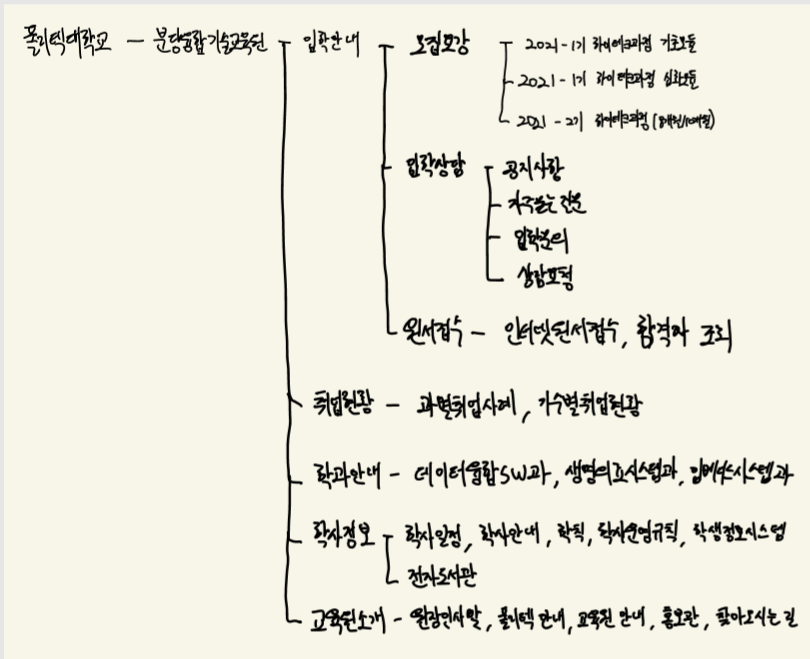 폴리텍대학교 - 분당융합기술교육원 입학안내 모집요강 2021-1기 하이테크과정 기초모듈
2021-1기 하이테크과정 심화모듈
2021-2기 하이테크과정 (8개월/10개월)
입학상담 공지사항
자주묻는질문
입학문의
상담요청
원서접수 - 인터넷원서접수, 합격자 조회
취업현황 - 과별취업사례, 기수별취업현황
학과안내 - 데이터융합SW과, 생명의료시스템과, 임베디드시스템과
학사정보 학사일정, 학사안내, 학칙, 학사운영규칙, 학생정보시스템
전자도서관
교육원소개 - 원장인사말, 폴리텍 안내, 교육원 안내, 홍보관, 찾아오시는 길